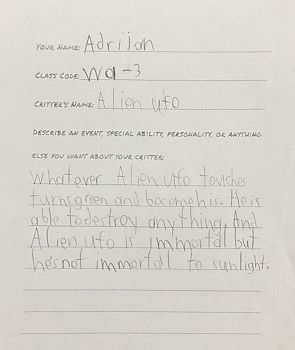 YOUR NAME: Adrijan
CLASS CODE: Wa-3
CRITTER'S NAME: Alien ufo
DESCRIBE AN EVENT, SPECIAL ABILITY, PERSONALITY, OR ANYTHING
ELSE YOU WANT ABOUT YOUR CRITTER:
Whatever Alien ufo touches
turns green and become his. He is
able to destroy any thing. And
Alien ufo is immortal but
he's not immortal to sunlight.